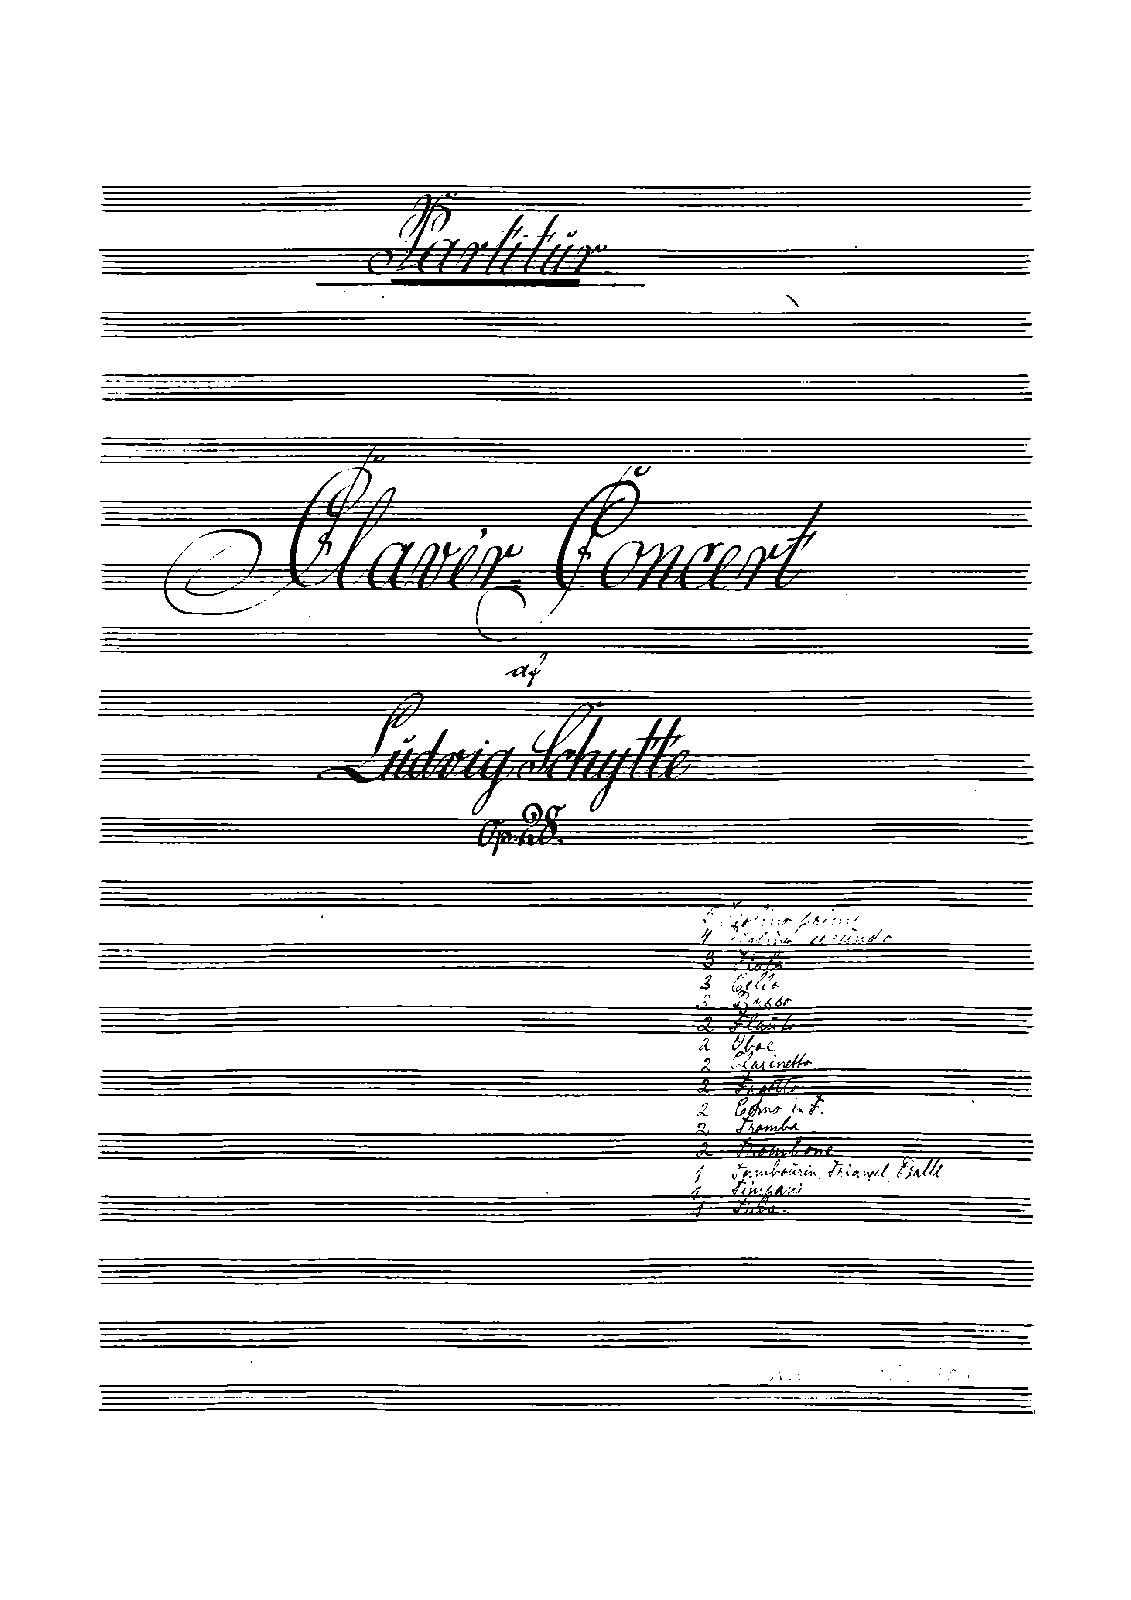 Partitur
Clavér-Concert
af
Ludvig Schytte
Op. 28.
5 Violino primo
4 Violino secundo
3 Viola
3 Cello
3 Basso
2 Flauto
2 Oboe
2 Clarinetto
2 Fagotto
2 Corno in F.
2 Tromba
2 Trombone
1 Tambourin, Triangel,
1 Timpani
1 Tuba.